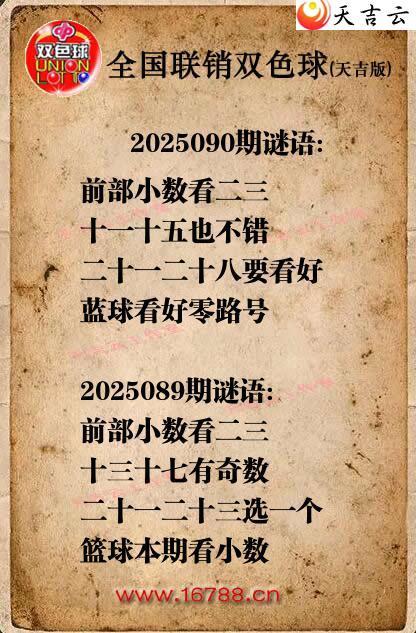 天吉云
双色球
UNION
LOTTO
全国联销双色球(天吉版)
2025090期谜语:
前部小数看二三
十一十五也不错
二十一二十八要看好
蓝球看好零路号
2025089期谜语:
前部小数看二三
十三十七有奇数
二十一二十三选一个
篮球本期看小数
www.16788.cn